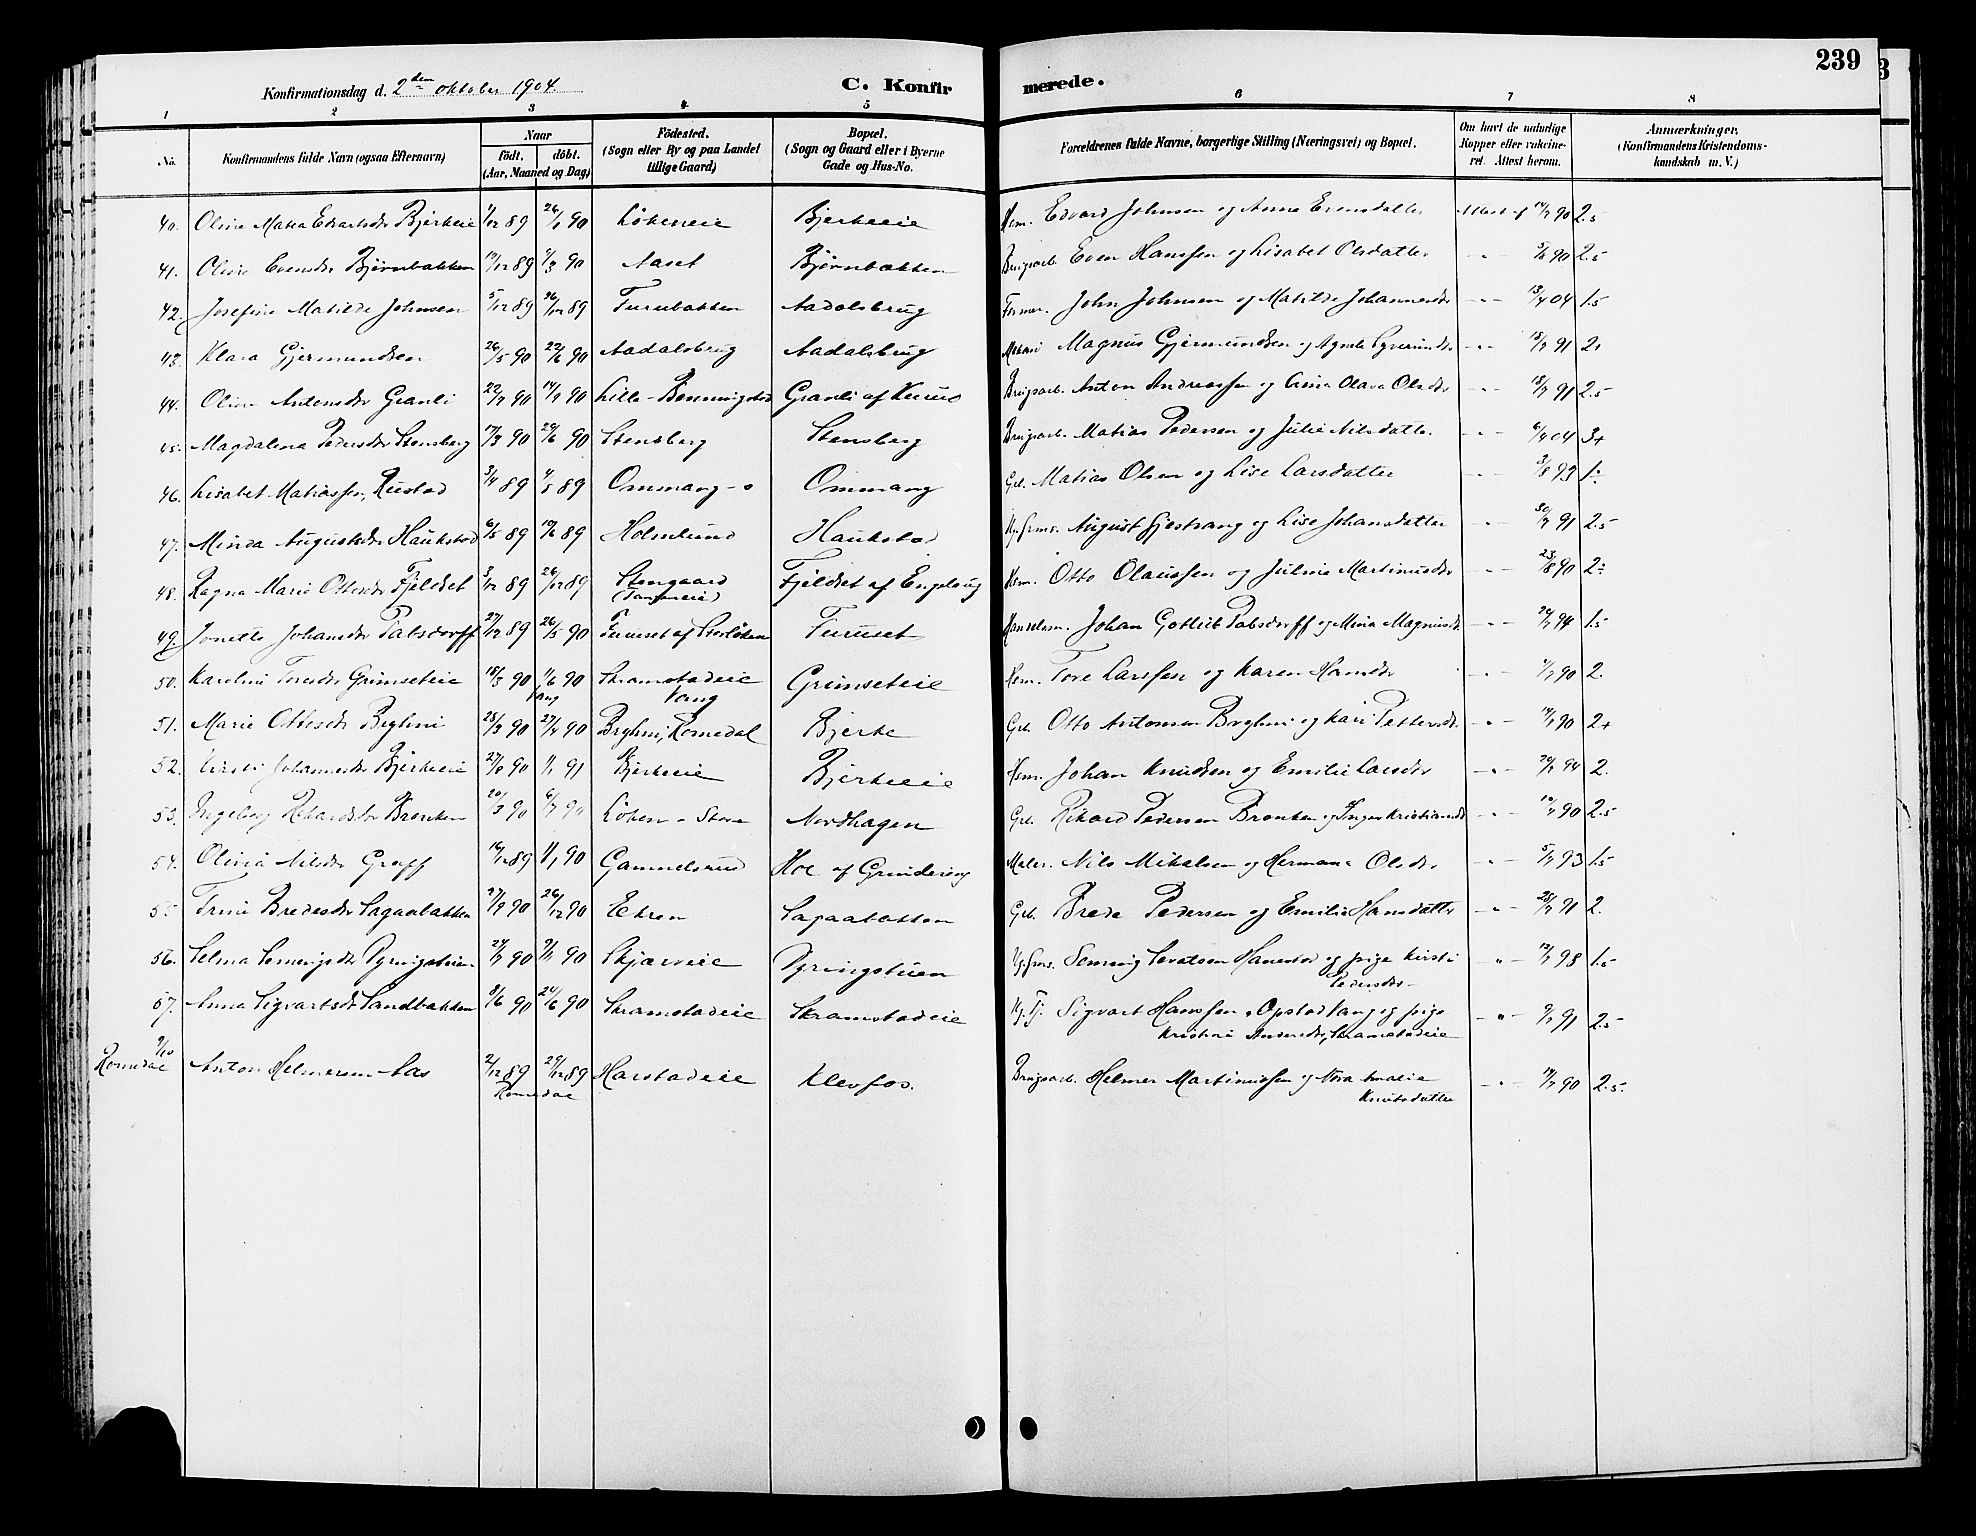 239
Konfirmationsdag d. 2den oktober 1904.
C. Konfirmerede.
1 2 3 4 5 6 7 8
No. Konfirmandens fulde Navn (ogsaa Efternavn)
Naar födt. döbt. (Aar, Maaned og Dag)
Födested. (Sogn eller By og paa Landet tillige Gaard)
Bopæl. (Sogn og Gaard eller i Byerne Gade og Hus-No.
Forældrenes fulde Navne, borgerlige Stilling (Næringsvei) og Bopæl.
Om havt de naturlige Kopper eller vakcineret. Attest herom.
Anmærkninger, (Konfirmandens Kristendomskundskab m. V.)
40. Oline Matea Edvartsdr Bjerkeie 1/12 89 26/1 90 Løkeneie Bjerkeeie Hsm. Edvard Johnsen og Anne Evensdatter Attest af 14/7 90 2.5
41. Oline Evensdr Bjørnbakken 19/12 89 9/3 90 Aaset Bjørnbakken Brugsarb. Even Hanssen og Lisabet Olsdatter -"- 5/8 90 2.5
42. Josefine Matilde Johnsen 5/12 89 26/12 89 Furubakken Aadalsbrug Former. John Johnsen og Matilde Johannesdr -"- 13/4 04 1.5
43. Klara Gjermundsen 26/5 90 22/6 90 Aadalsbrug Aadalsbrug Magnus Gjermundsen og Agnete -"- 18/7 91 2+
44. Oline Antonsdr Granli 22/7 90 14/9 90 Lille-Benningstad Granli af Kurud Brugsarb. Anton Andreassen og Olava Olsdr -"- 18/7 91 2.5
45. Magdalena Pedersdr Stensberg 17/3 90 29/6 90 Stensberg Stensberg Brugsarb. Matias Pedersen og Julie Nilsdatter -"- 6/4 04 3+
46. Lisabet Matiassen, Rustad 3/4 89 4/5 89 Ommang-ø Ommang Grb. Matias Olsen og Lise Larsdatter -"- 3/8 93 1÷
47. Minda Augustsdr Haukstad 6/5 89 10/6 89 Holmlund Haukstad August Gjestvang og Lise Johansdatter -"- 30/7 91 2.5
48. Ragna Marie Ottesdr Fjeldset 3/12 89 26/12 89 Stengaard Fjeldset af Engelaug Hsm. Otto Olaussen og Juline Martinusdr -"- 23/8 90 2÷
49. Jonette Johansdr Pabsdorff 27/12 89 26/5 90 Furuset af Storløken Furuset Handelsm. Johan Gotlieb Pabsdorff og Mina Magnusdr -"- 24/7 94 1.5
50. Karoline Toresdr Grimseteie 18/3 90 1/6 90 Vang Skramstadeie Vang Grimseteie Hsm. Tore Larssen og Karen Hansdr -"- 90 2.
51. Marie Ottesdr Bryhni 25/3 90 27/4 90 Bryhni, Romedal Bjerke Grb. Otto Antonsen Bryhni og Kari Pettersdr -"- 14/7 90 2+
52. Kirsti Johannesdr Bjerkeeie 27/8 90 1/1 91 Bjerkeeie Bjerkeeie Hsm. Johan Knudsen og Emilie Larsdr -"- 24/7 94 2.
53. Ingeborg Rikardsdr Brenken 20/3 90 6/7 90 Løken-Store Nordhagen Grb. Rikard Pedersen Brenken og Inger Kristiansdr -"- 10/7 90 2.5
54. Olivia Nilsdr Graff 16/12 89 1/1 90 Gammelsrud Hoe af Grindereng Maler. Nils Mikalsen og Hermana Olsdr -"- 5/7 93 1.5
55. Trine Bredesdr Sagaabakken 27/9 90 26/12 90 Ekren Sagaabakken Grb. Brede Pedersen og Emilie Hansdatter -"- 25/7 91 2.
56. Selma Semingsdr Pyringstuen 24/7 90 9/11 90 Skjærveie Pyringstuen Seming Sevatsen Hanestad og pige Kirsti Pedersdr -"- 12/7 98 1.5
57. Anna Sigvartsdr Sandbakken 8/6 90 24/6 90 Skramstadeie Skramstadeie Sigvart Hanssen, Opstad Vang og pige Kristine Andersdr, Skramstadeie -"- 9/7 91 2.5
9/10 Romedal Anton Helmersen Aas 2/12 89 29/12 89 Romedal Harstadeie Klevfos. Brugsarb. Helmer Martinussen og Nora Amalie Knutsdatter -"- 14/7 90 2.5.